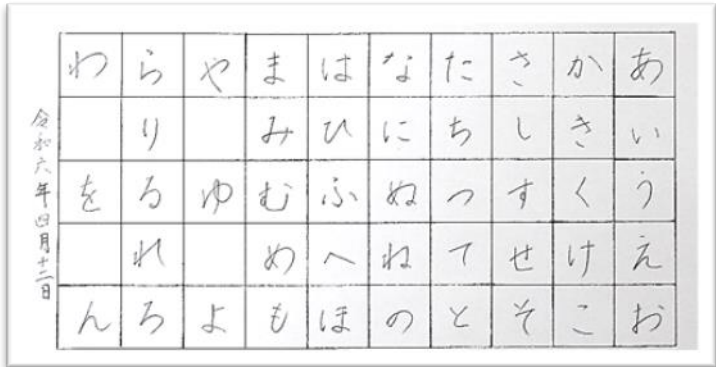 あいうえお
かきくけこ
さしすせそ
たちつてと
なにぬねの
はひふへほ
まみむめも
やゆよ
らりるれろ
わをん
令和六年四月十二日